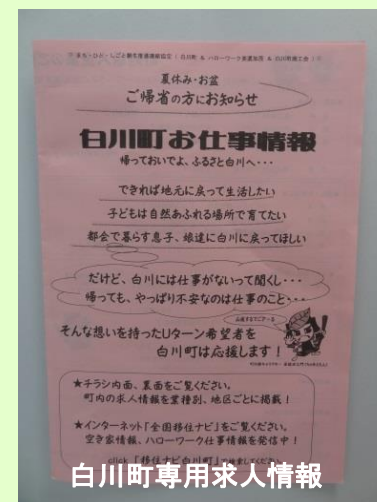 夏休み・お盆
ご帰省の方にお知らせ
白川町お仕事情報
帰っておいでよ、ふるさと白川へ・・・
できれば地元に戻って生活したい
子どもは自然あふれる場所で育てたい
都会で暮らす息子、娘達に白川に戻ってほしい
だけど、白川には仕事がないって聞くし・・・
帰っても、やっぱり不安なのは仕事のこと・・・
そんな想いを持ったUターン希望者を
白川町は応援します!
★チラシ内面、裏面をご覧ください。
町内の求人情報を業種別、地区ごとに掲載!
★インターネット「全国移住ナビ」をご覧ください。
空き家情報、ハローワーク仕事情報を発信中!
click「移住ナビ白川町」で検索してください
白川町専用求人情報